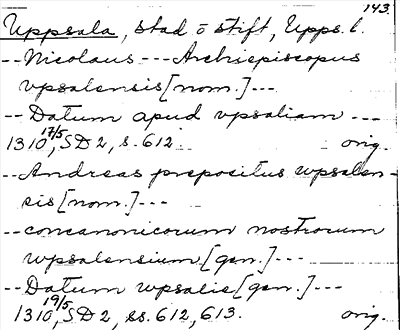 143
Uppsala, stad o stift, Upps. l.
-- Nicolaus --- Archiepiscopus
vpsalensis [nom.] ---
-- Datum apud vpsaliam ---
1310 17/5, SD 2, s. 612. orig.
-- Andreas prepositus wpsalen-
sis [nom.] ---
-- concanonicorum nostrorum
wpsalensium [gen.] ---
-- Datum wpsalie [gen.] ---
1310 19/5, SD 2, ss. 612, 613. orig.